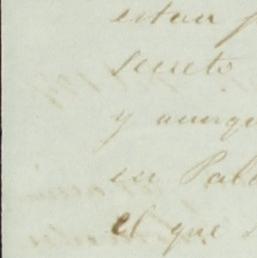 estan p
secreto
y aunqu
en Pala
el que s